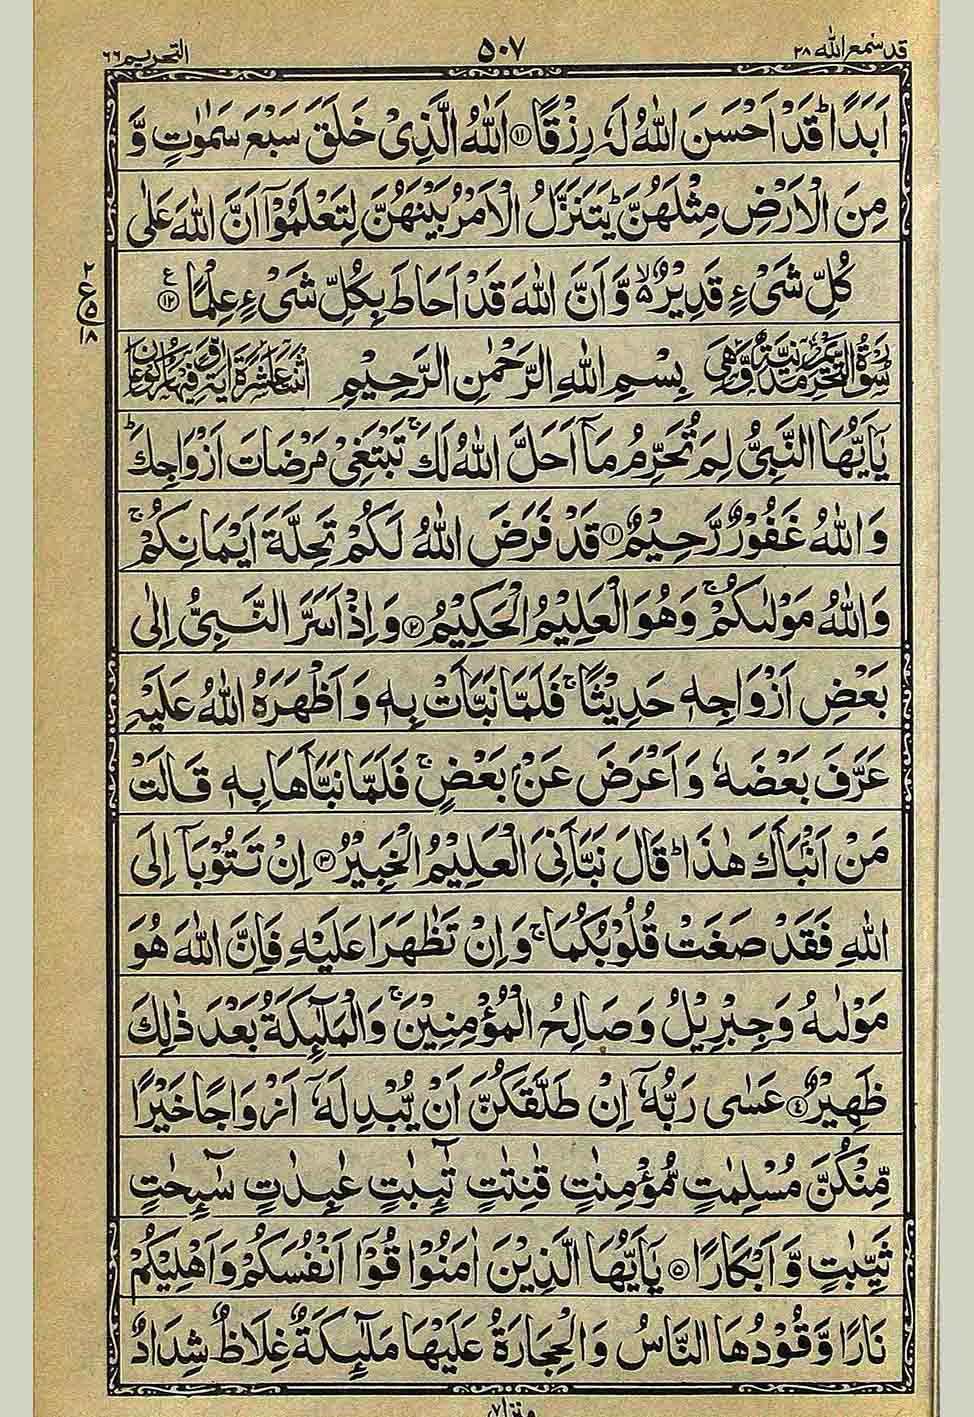 قد سمع الله ۲۸
۵۰۷
التحريم ۶۶
اَبَدًا ؕ قَدْ اَحْسَنَ اللّٰهُ لَهٗ رِزْقًا ﴿۱۱﴾ اَللّٰهُ الَّذِیْ خَلَقَ سَبْعَ سَمٰوٰتٍ وَّ
مِنَ الْاَرْضِ مِثْلَهُنَّ ؕ یَتَنَزَّلُ الْاَمْرُ بَیْنَهُنَّ لِتَعْلَمُوْۤا اَنَّ اللّٰهَ عَلٰی
كُلِّ شَیْءٍ قَدِیْرٌ ۙ۬ وَّ اَنَّ اللّٰهَ قَدْ اَحَاطَ بِكُلِّ شَیْءٍ عِلْمًا ﴿۱۲﴾ ع
۲
ع
۵
۱۸
سورة التحريم مدنية وهي
بِسْمِ اللّٰهِ الرَّحْمٰنِ الرَّحِیْمِ
اثنتا عشرة اية وفيها ركوعان
یٰۤاَیُّهَا النَّبِیُّ لِمَ تُحَرِّمُ مَاۤ اَحَلَّ اللّٰهُ لَكَ ۚ تَبْتَغِیْ مَرْضَاتَ اَزْوَاجِكَ ؕ
وَ اللّٰهُ غَفُوْرٌ رَّحِیْمٌ ﴿۱﴾ قَدْ فَرَضَ اللّٰهُ لَكُمْ تَحِلَّةَ اَیْمَانِكُمْ ۚ
وَ اللّٰهُ مَوْلٰىكُمْ ۚ وَ هُوَ الْعَلِیْمُ الْحَكِیْمُ ﴿۲﴾ وَ اِذْ اَسَرَّ النَّبِیُّ اِلٰی
بَعْضِ اَزْوَاجِهٖ حَدِیْثًا ۚ فَلَمَّا نَبَّاَتْ بِهٖ وَ اَظْهَرَهُ اللّٰهُ عَلَیْهِ
عَرَّفَ بَعْضَهٗ وَ اَعْرَضَ عَنْۢ بَعْضٍ ۚ فَلَمَّا نَبَّاَهَا بِهٖ قَالَتْ
مَنْ اَنْۢبَاَكَ هٰذَا ؕ قَالَ نَبَّاَنِیَ الْعَلِیْمُ الْخَبِیْرُ ﴿۳﴾ اِنْ تَتُوْبَاۤ اِلَی
اللّٰهِ فَقَدْ صَغَتْ قُلُوْبُكُمَا ۚ وَ اِنْ تَظٰهَرَا عَلَیْهِ فَاِنَّ اللّٰهَ هُوَ
مَوْلٰىهُ وَ جِبْرِیْلُ وَ صَالِحُ الْمُؤْمِنِیْنَ ۚ وَ الْمَلٰٓىِٕكَةُ بَعْدَ ذٰلِكَ
ظَهِیْرٌ ﴿۴﴾ عَسٰی رَبُّهٗۤ اِنْ طَلَّقَكُنَّ اَنْ یُّبْدِلَهٗۤ اَزْوَاجًا خَیْرًا
مِّنْكُنَّ مُسْلِمٰتٍ مُّؤْمِنٰتٍ قٰنِتٰتٍ تٰٓىِٕبٰتٍ عٰبِدٰتٍ سٰٓىِٕحٰتٍ
ثَیِّبٰتٍ وَّ اَبْكَارًا ﴿۵﴾ یٰۤاَیُّهَا الَّذِیْنَ اٰمَنُوْا قُوْۤا اَنْفُسَكُمْ وَ اَهْلِیْكُمْ
نَارًا وَّ قُوْدُهَا النَّاسُ وَ الْحِجَارَةُ عَلَیْهَا مَلٰٓىِٕكَةٌ غِلَاظٌ شِدَادٌ